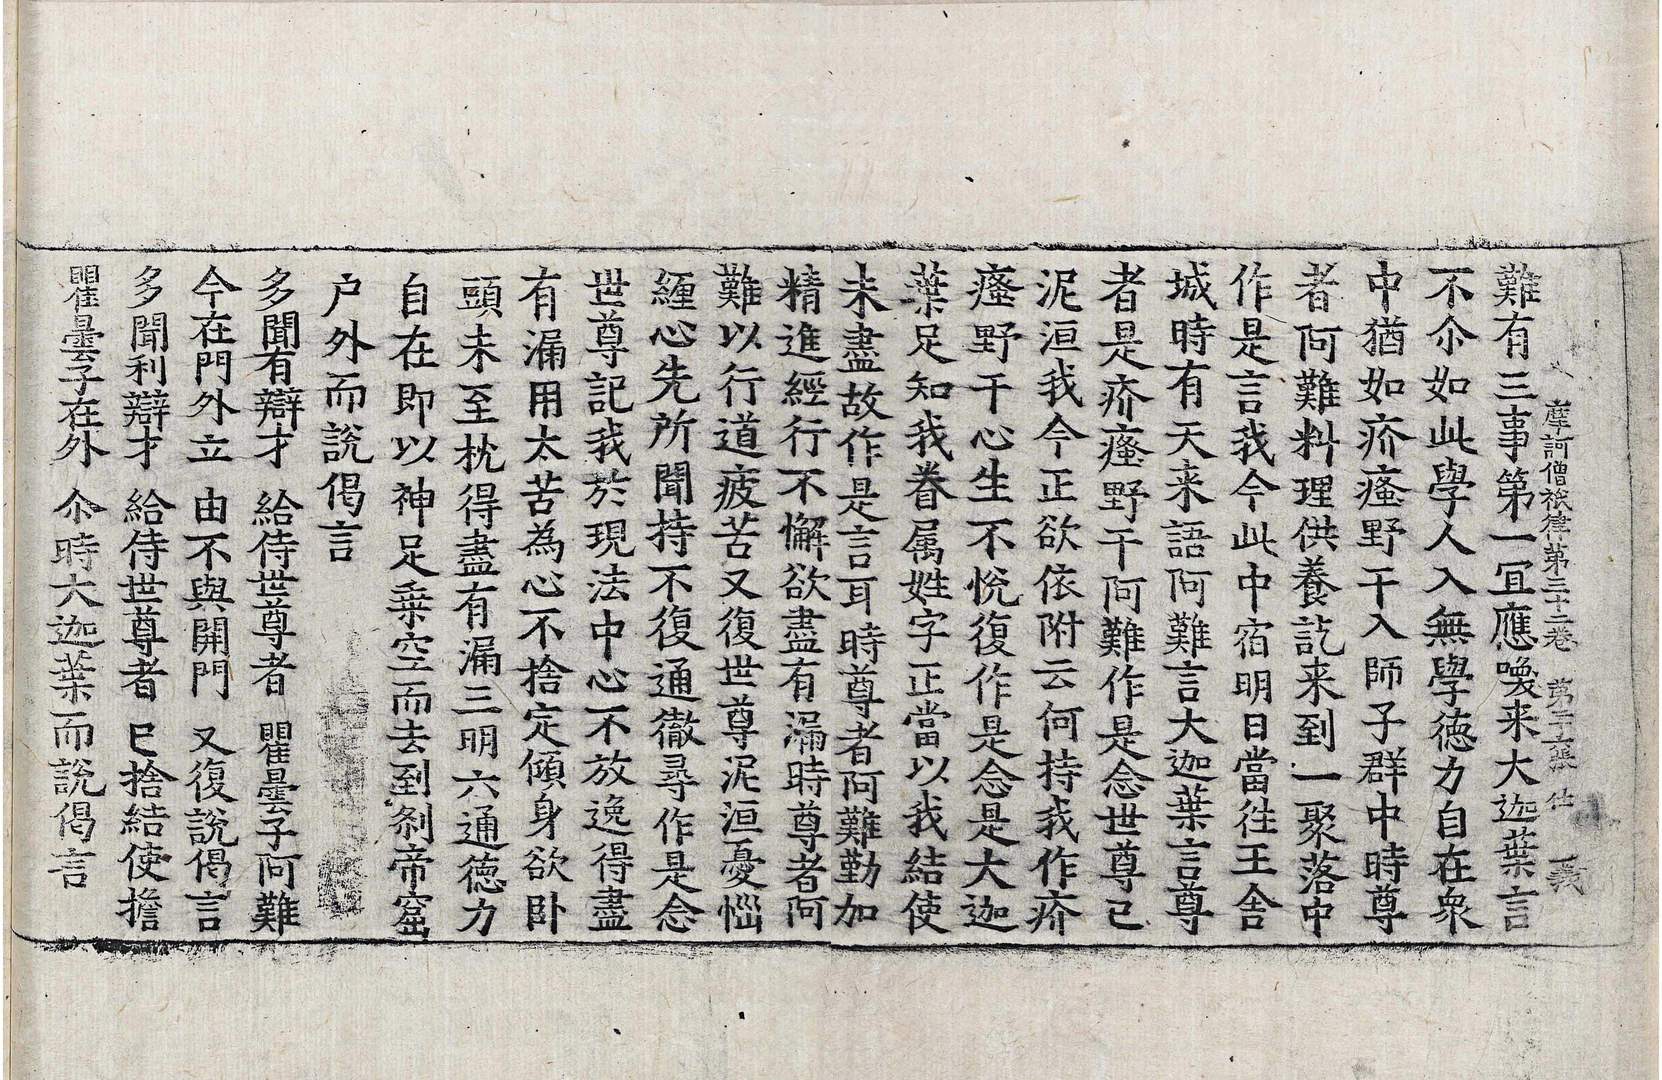 摩訶僧祇律第三十二卷 第三張 仕 義
難有三事第一冝應喚来大迦葉言
不尒如此學人入無學德力自在衆
中猶如疥瘙野干入師子群中時尊
者阿難料理供養訖来到一聚落中
作是言我今此中宿明日當往王舍
城時有天来語阿難言大迦葉言尊
者是疥瘙野干阿難作是念世尊已
泥洹我今正欲依附云何持我作疥
瘙野干心生不悅復作是念是大迦
葉足知我眷属姓字正當以我結使
未盡故作是言耳時尊者阿難勤加
精進經行不懈欲盡有漏時尊者阿
難以行道疲苦又復世尊泥洹憂惱
纏心先所聞持不復通徹尋作是念
世尊記我於現法中心不放逸得盡
有漏用太苦為心不捨定傾身欲卧
頭未至枕得盡有漏三明六通德力
自在即以神足乗空而去到刹帝窟
户外而說偈言
多聞有辯才 給侍世尊者 瞿曇子阿難
今在門外立 由不與開門 又復說偈言
多聞利辯才 給侍世尊者 已捨結使擔
瞿曇子在外 尒時大迦葉而說偈言